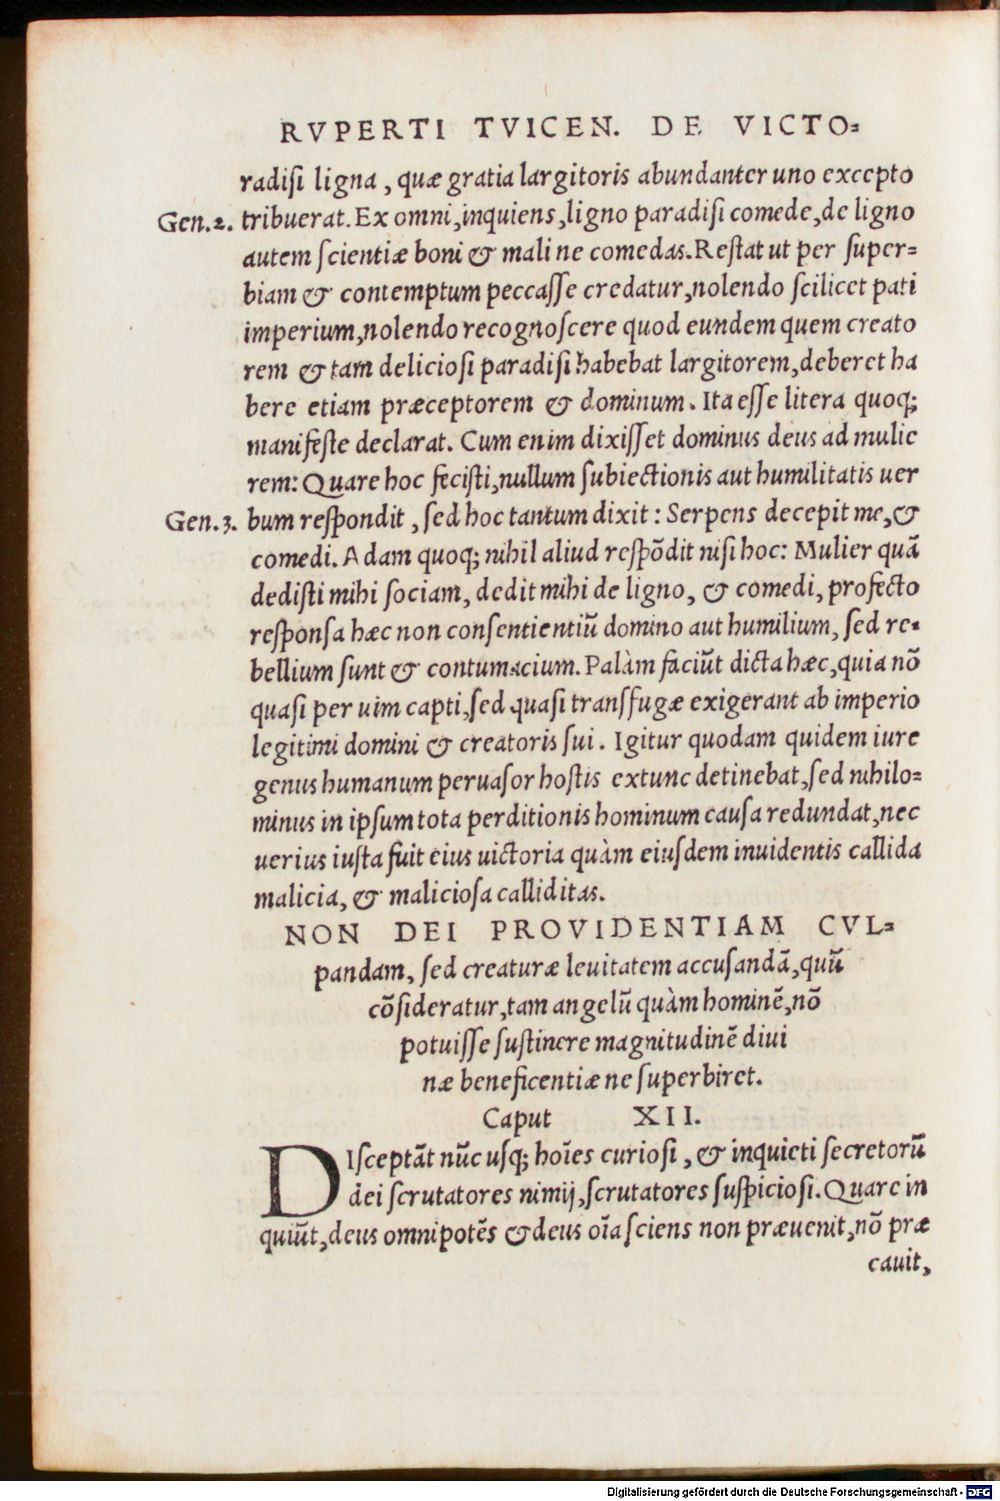 RVPERTI TVICEN. DE VICTO=
radiſi ligna, quæ gratia largitoris abundanter uno excepto
Gen.2. tribuerat. Ex omni, inquiens, ligno paradiſi comede, de ligno
autem ſcientiæ boni & mali ne comedas. Reſtat ut per ſuper=
biam & contemptum peccaſſe credatur, nolendo ſcilicet pati
imperium, nolendo recognoſcere quod eundem quem creato
rem & tam delicioſi paradiſi habebat largitorem, deberet ha
bere etiam præceptorem & dominum. Ita eſſe litera quoq;
manifeſte declarat. Cum enim dixiſſet dominus deus ad mulie
rem: Quare hoc feciſti, nullum ſubiectionis aut humilitatis uer
Gen.3. bum reſpondit, ſed hoc tantum dixit: Serpens decepit me, &
comedi. Adam quoq; nihil aliud reſpõdit niſi hoc: Mulier quã
dediſti mihi ſociam, dedit mihi de ligno, & comedi, profecto
reſponſa hæc non conſentientiũ domino aut humilium, ſed re=
bellium ſunt & contumacium. Palàm faciũt dicta hæc, quia nõ
quaſi per uim capti, ſed quaſi transfugæ exigerant ab imperio
legitimi domini & creatoris ſui. Igitur quodam quidem iure
genus humanum peruaſor hoſtis extunc detinebat, ſed nihilo=
minus in ipſum tota perditionis hominum cauſa redundat, nec
uerius iuſta fuit eius uictoria quàm eiuſdem inuidentis callida
malicia, & malicioſa calliditas.
NON DEI PROVIDENTIAM CVL=
pandam, ſed creaturæ leuitatem accuſandã, quũ
cõſideratur, tam angelũ quàm hominẽ, nõ
potuiſſe ſuſtinere magnitudinẽ diui
næ beneficentiæ ne ſuperbiret.
Caput XII.
DIſceptãt nũc uſq; hoĩes curioſi, & inquieti ſecretorũ
dei ſcrutatores nimij, ſcrutatores ſuſpicioſi. Quare in
quiũt, deus omnipotẽs & deus oĩa ſciens non præuenit, nõ præ
cauit,
Digitalisierung gefördert durch die Deutsche Forschungsgemeinschaft - DFG